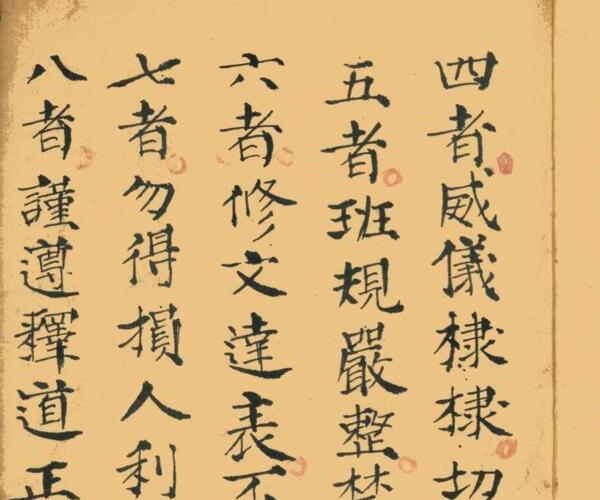 四者威儀棣棣切
五者班規嚴整
六者修文達表不
七者勿得損人利
八者謹遵釋道正